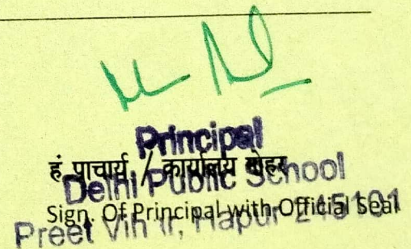 Principal
हं. प्राचार्य / कार्यालय मोहर
Delhi Public School
Sign. Of Principal with Official Seal
Preet Vih r, Hapur 245101